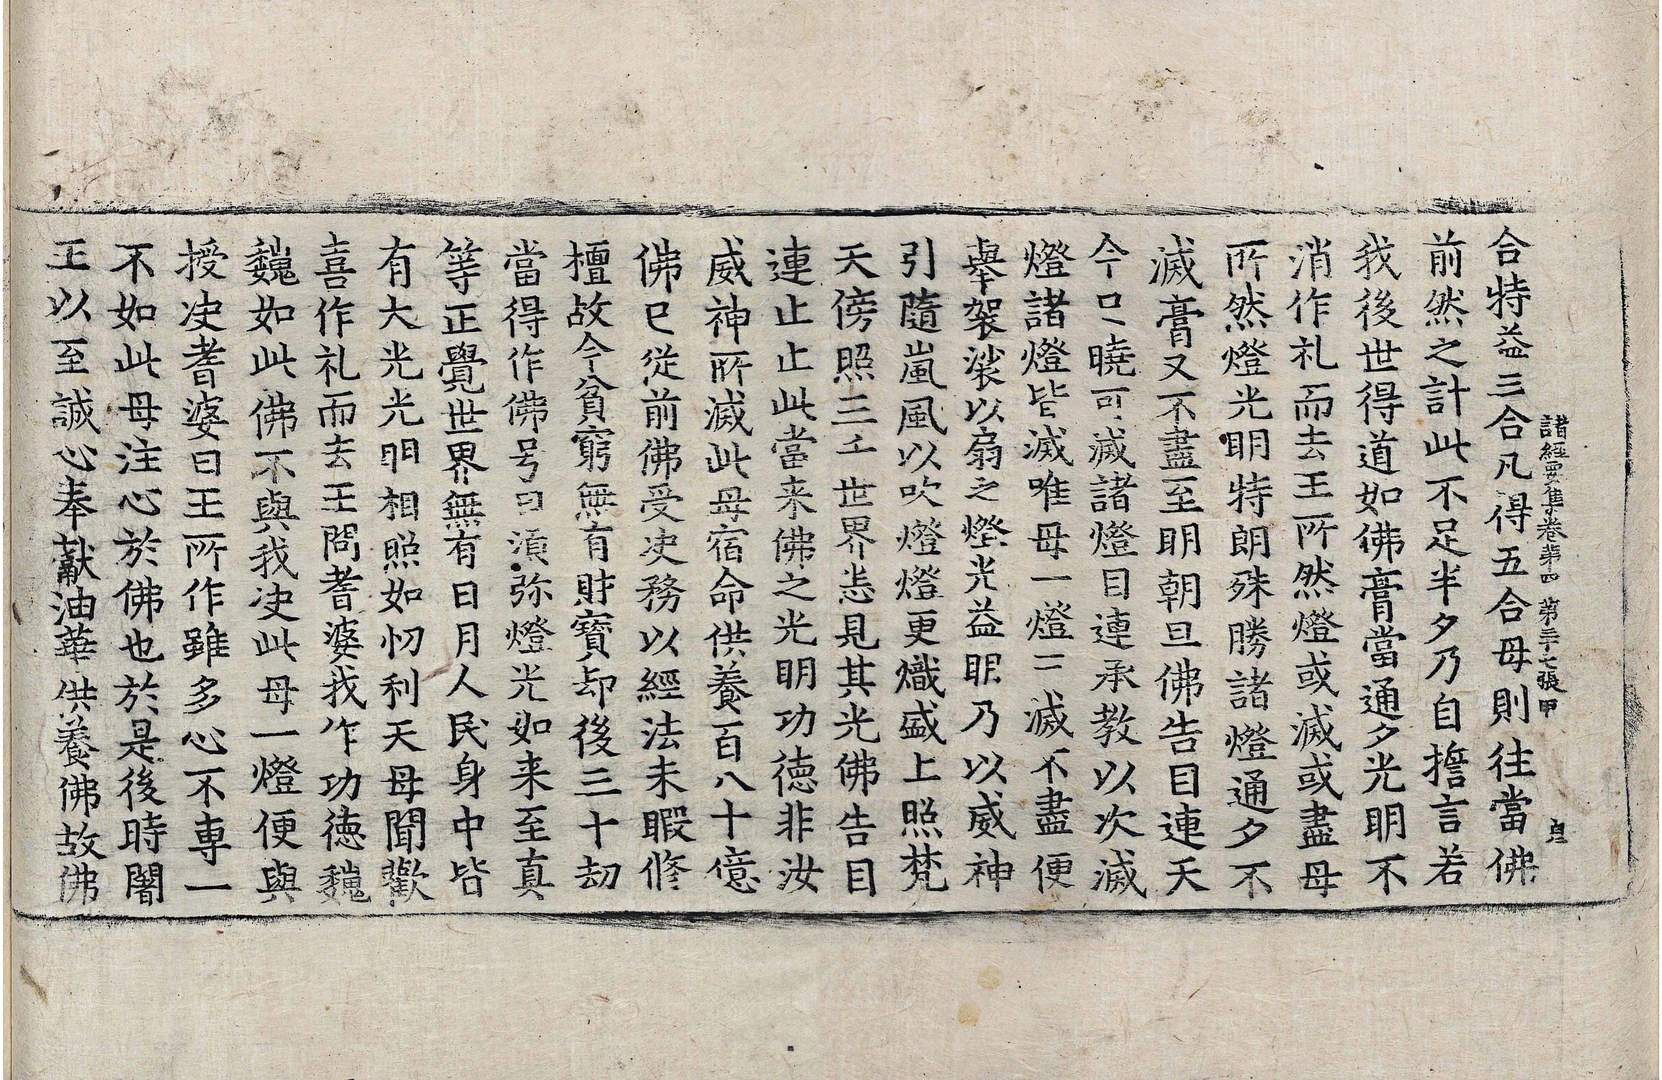 諸經要集卷第四　第三十七張甲　皇
合特益三合凡得五合母則往當佛
前然之計此不足半夕乃自擔言若
我後世得道如佛膏當通夕光明不
消作礼而去王所然燈或滅或盡母
所然燈光明特朗殊勝諸燈通夕不
滅膏又不盡至明朝旦佛告目連天
今已曉可滅諸燈目連承教以次滅
燈諸燈皆滅唯母一燈三滅不盡便
舉袈裟以扇之燈光益明乃以威神
引隨嵐風以吹燈燈更熾盛上照梵
天傍照三千世界悉見其光佛告目
連止止此當来佛之光明功德非汝
威神所滅此母宿命供養百八十億
佛已從前佛受決務以經法未暇修
檀故今貧窮無有財寶却後三十劫
當得作佛号曰湏弥燈光如来至真
等正覺世界無有日月人民身中皆
有大光光明相照如忉利天母聞歡
喜作礼而去王問耆婆我作功德巍
巍如此佛不與我决此母一燈便與
授决耆婆曰王所作雖多心不專一
不如此母注心於佛也於是後時闍
王以至誠心奉獻油華供養佛故佛